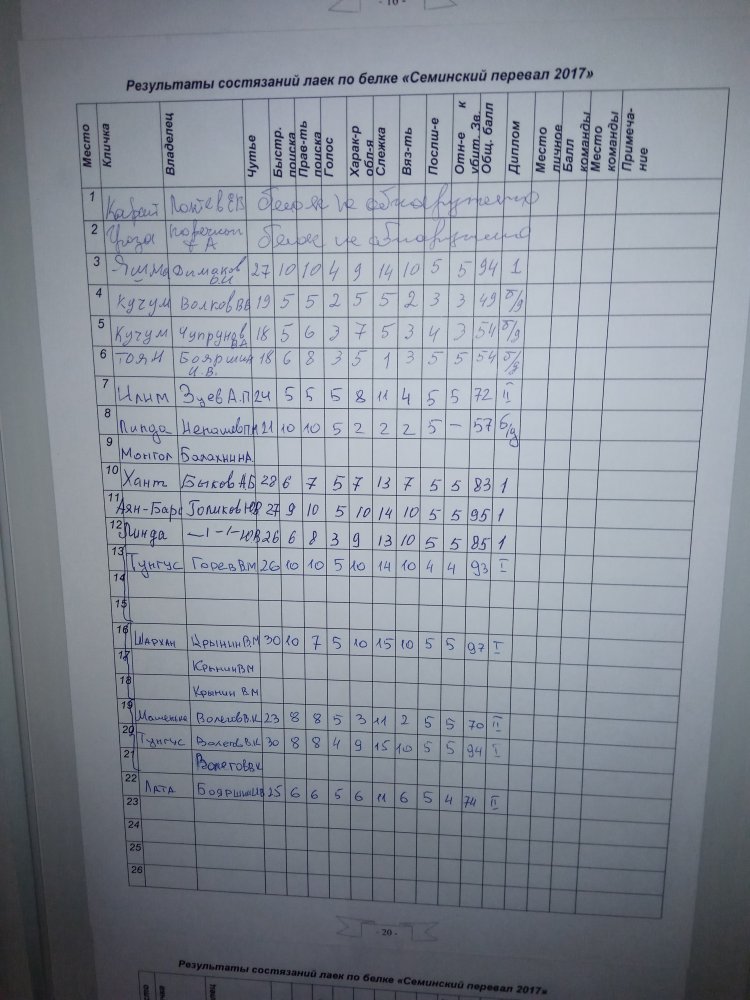 - 16 -
Результаты состязаний лаек по белке «Семинский перевал 2017»
Место Кличка Владелец Чутье Быстр. поиска Прав-ть поиска Голос Харак-р обл-я Слежка Вяз-ть Послш-е Отн-е к убит. Зв. Общ. балл Диплом Место личное Балл команды Место команды Примеча-ние
1 белок не обнаружено
2 белок не обнаружено
3 27 10 10 4 9 14 10 5 5 94 1
4 Кучум Волков 19 5 5 2 5 5 2 3 3 49 б/д
5 Кучум Чупрунов 18 5 6 3 7 5 3 4 3 54 б/д
6 Тоян Бояршин И.В. 18 6 8 3 5 1 3 5 5 54 б/д
7 Илим Зуев А.П 24 5 5 5 8 11 4 5 5 72 II
8 Линда 21 10 10 5 2 2 2 5 — 57 б/д
9 Монгол Балахнин А.
10 Хант Быков А Б 28 6 7 5 7 13 7 5 5 83 1
11 Аян-Барс Голиков ЮВ 27 9 10 5 10 14 10 5 5 95 1
12 Линда —ı–ı– ЮВ 26 6 8 3 9 13 10 5 5 85 1
13 Тунгус Горев В.М 26 10 10 5 10 14 10 4 4 93 I
14
15
16 Шархан Крынин В.М 30 10 7 5 10 15 10 5 5 97 I
17 Крынин В.М
18 Крынин В.М
19 Волегов В.К 23 8 8 5 3 11 2 5 5 70 II
20 Тунгус Волегов В.К 30 8 8 4 9 15 10 5 5 94 I
21 Волегов В.К
22 Лата Бояршин И.В 25 6 6 5 6 11 6 5 4 74 II
23
24
25
26
- 20 -
Результаты состязаний лаек по белке «Семинский перевал 2017»